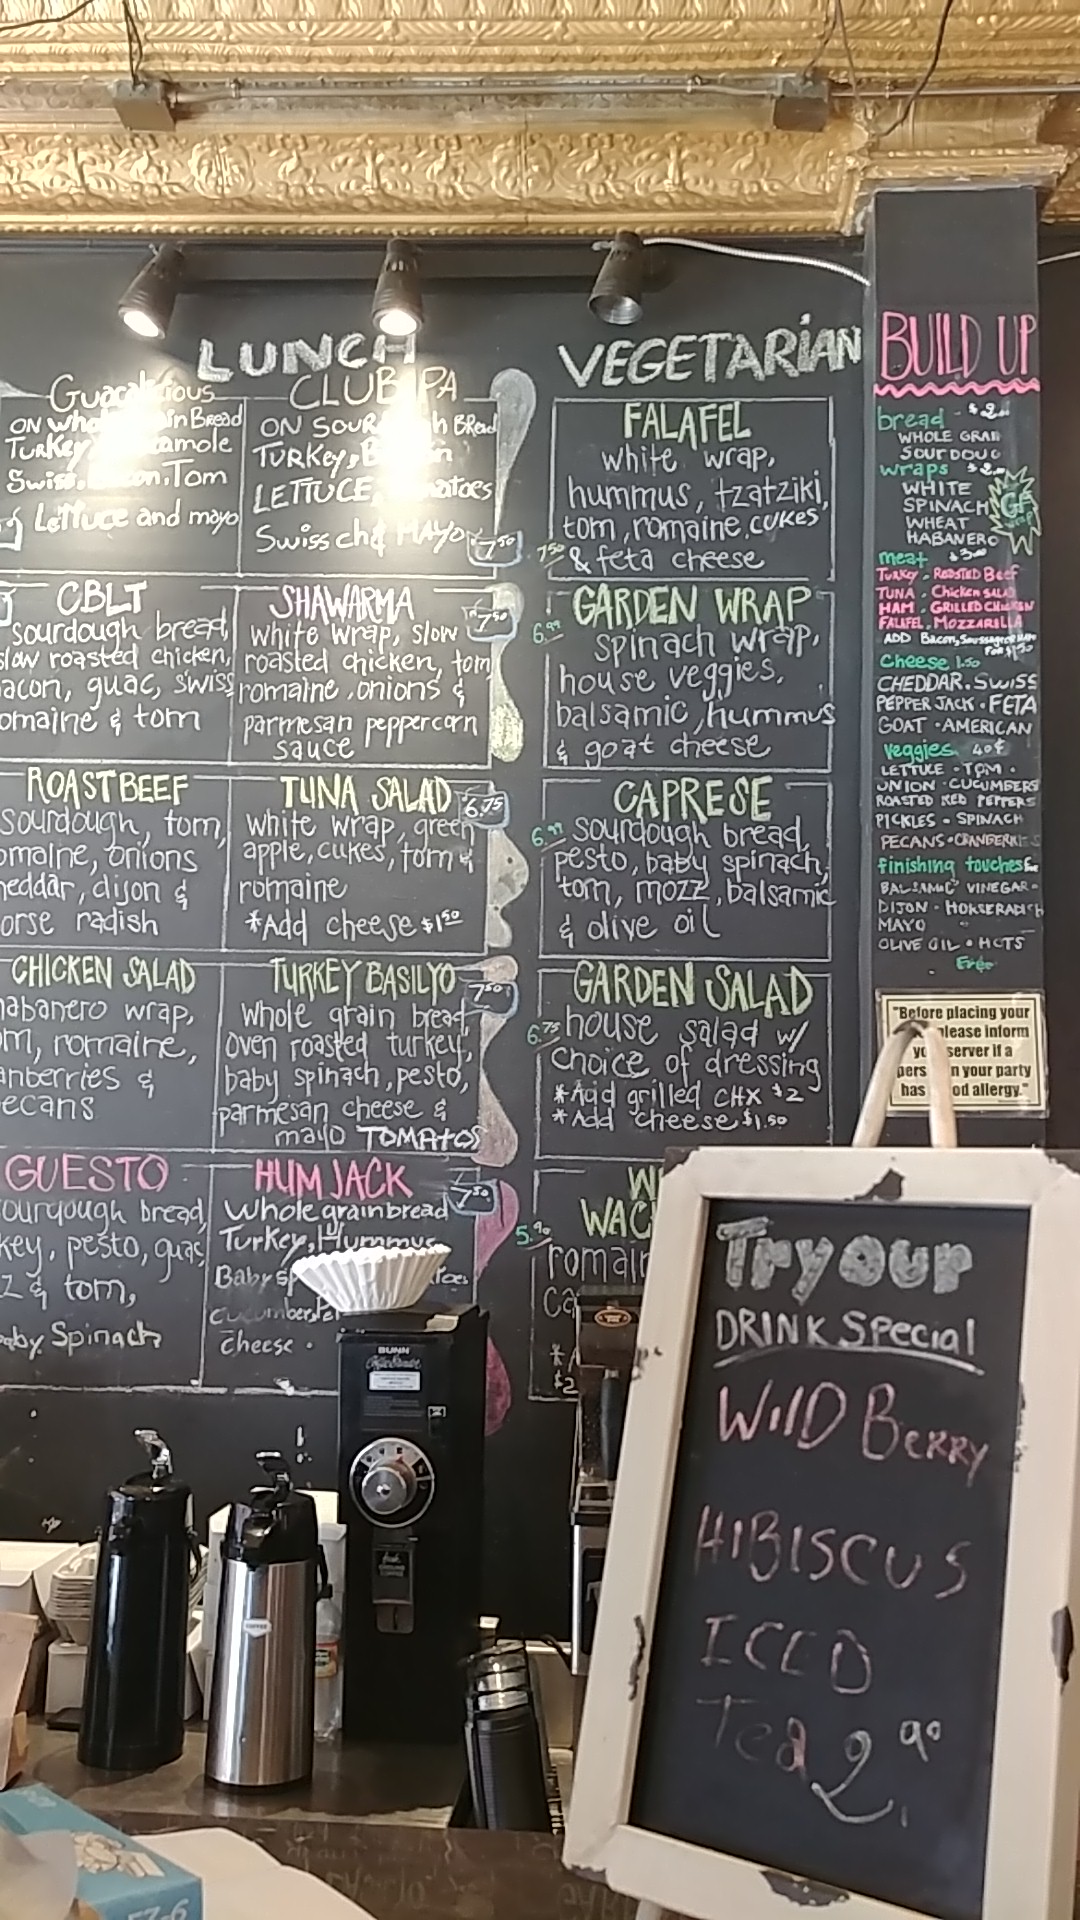 LUNCH
ON
Bread
Turkey
Tom
Lettuce and mayo
CLUB PA
ON SOUR h BRead
Turkey,
LETTUCE,
Swiss ch & MAYO
7.50
CBLT
sourdough bread,
slow roasted chicken,
acon, guac, swiss
omaine & tom
SHAWARMA
7.50
white wrap, slow
roasted chicken, tom,
romaine, onions &
parmesan peppercorn
sauce
ROAST BEEF
sourdough, tom,
omaine, onions
heddar, dijon &
orse radish
TUNA SALAD
6.75
white wrap, green
apple, cukes, tom &
romaine
*Add cheese $1.50
CHICKEN SALAD
habanero wrap,
om, romaine,
anberries &
ecans
TURKEY BASILYO
7.50
Whole grain bread,
oven roasted turkey,
baby spinach, pesto,
parmesan cheese &
mayo TOMATOS
GUESTO
ourdough bread,
key, pesto, guac,
Z & tom,
aby Spinach
HUM JACK
7.50
Whole grain bread
Turkey, Hummus
Baby sp
cucumbers
cheese .
VEGETARIAN
FALAFEL
white wrap,
hummus, tzatziki,
tom, romaine, cukes
7.50 & feta cheese
GARDEN WRAP
6.99 spinach wrap,
house veggies,
balsamic, hummus
& goat cheese
CAPRESE
6.99 sourdough bread,
pesto, baby spinach,
tom, mozz, balsamic
& olive oil
GARDEN SALAD
6.75 house salad w/
choice of dressing
*Add grilled CHX $2
*Add cheese $1.50
WAC
5.90
romain
ca
*A
$2
BUILD UP
bread - $2
WHOLE GRAIN
SOURDOUG
wraps $2
WHITE
SPINACH
WHEAT
HABANERO
GF
wrap
meat $3.00
Turkey . Roasted Beef
TUNA . Chicken SALAD
HAM . GRILLED CHICKEN
FALAFEL . MOZZARELLA
ADD Bacon, Saussage
For $1.50
Cheese 1.50
CHEDDAR . SWISS
PEPPER JACK . FETA
GOAT . AMERICAN
veggies 40¢
LETTUCE - TOM .
UNION . CUCUMBERS
ROASTED RED PEPPERS
PICKLES - SPINACH
PECANS . CRANBERRIES
finishing touches
BALSAMIC VINEGAR -
DIJON - HORSERADISH
MAYO
OLIVE OIL . HOTS
Free
"Before placing your
please inform
server if a
pers n in your party
has od allergy."
Try our
DRINK Special
WilD BeRRY
HiBISCUS
ICED
Tea 2.90
BUNN
COFFEE
FZ-6